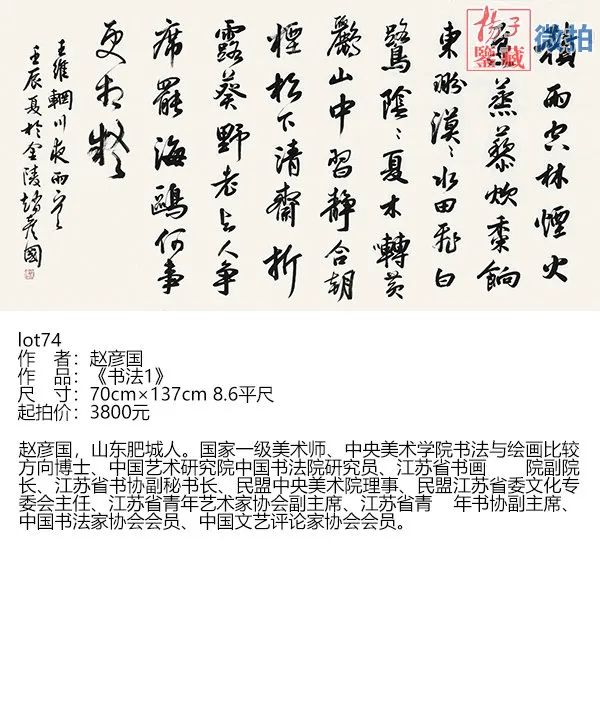 積雨空林煙火
遲蒸藜炊黍餉
東菑漠〻水田飛白
鷺陰〻夏木囀黃
鸝山中習靜合朝
槿松下清齋折
露葵野老与人爭
席罷海鷗何事
更相疑
王維輞川雨
壬辰夏於金陵趙彥國
扬子
鉴藏
微拍
lot74
作 者：赵彦国
作 品：《书法1》
尺 寸：70cm×137cm 8.6平尺
起拍价：3800元
赵彦国，山东肥城人。国家一级美术师、中央美术学院书法与绘画比较
方向博士、中国艺术研究院中国书法院研究员、江苏省书画 院副院
长、江苏省书协副秘书长、民盟中央美术院理事、民盟江苏省委文化专
委会主任、江苏省青年艺术家协会副主席、江苏省青 年书协副主席、
中国书法家协会会员、中国文艺评论家协会会员。